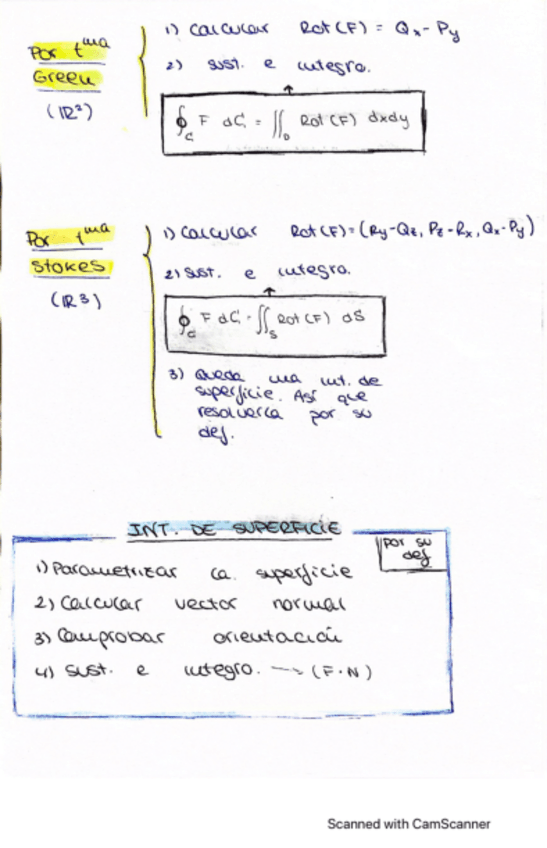 Por tma
Green
(IR²)
1) Calcular Rot(F) = Qx - Py
2) sust. e integro.
∮c F dC = ∬D Rot(F) dxdy
Por tma
Stokes
(IR3)
1) Calcular Rot(F)=(Ry-Qz, Pz-Rx, Qx-Py)
2) sust. e integro.
∮c F dC = ∬S Rot(F) dS
3) Queda una int. de
superficie. Así que
resolverla por su
def.
INT. DE SUPERFICIE
por su
def
1) Parametrizar la superficie
2) Calcular vector normal
3) Comprobar orientación
4) sust. e integro. → (F·N)
Scanned with CamScanner